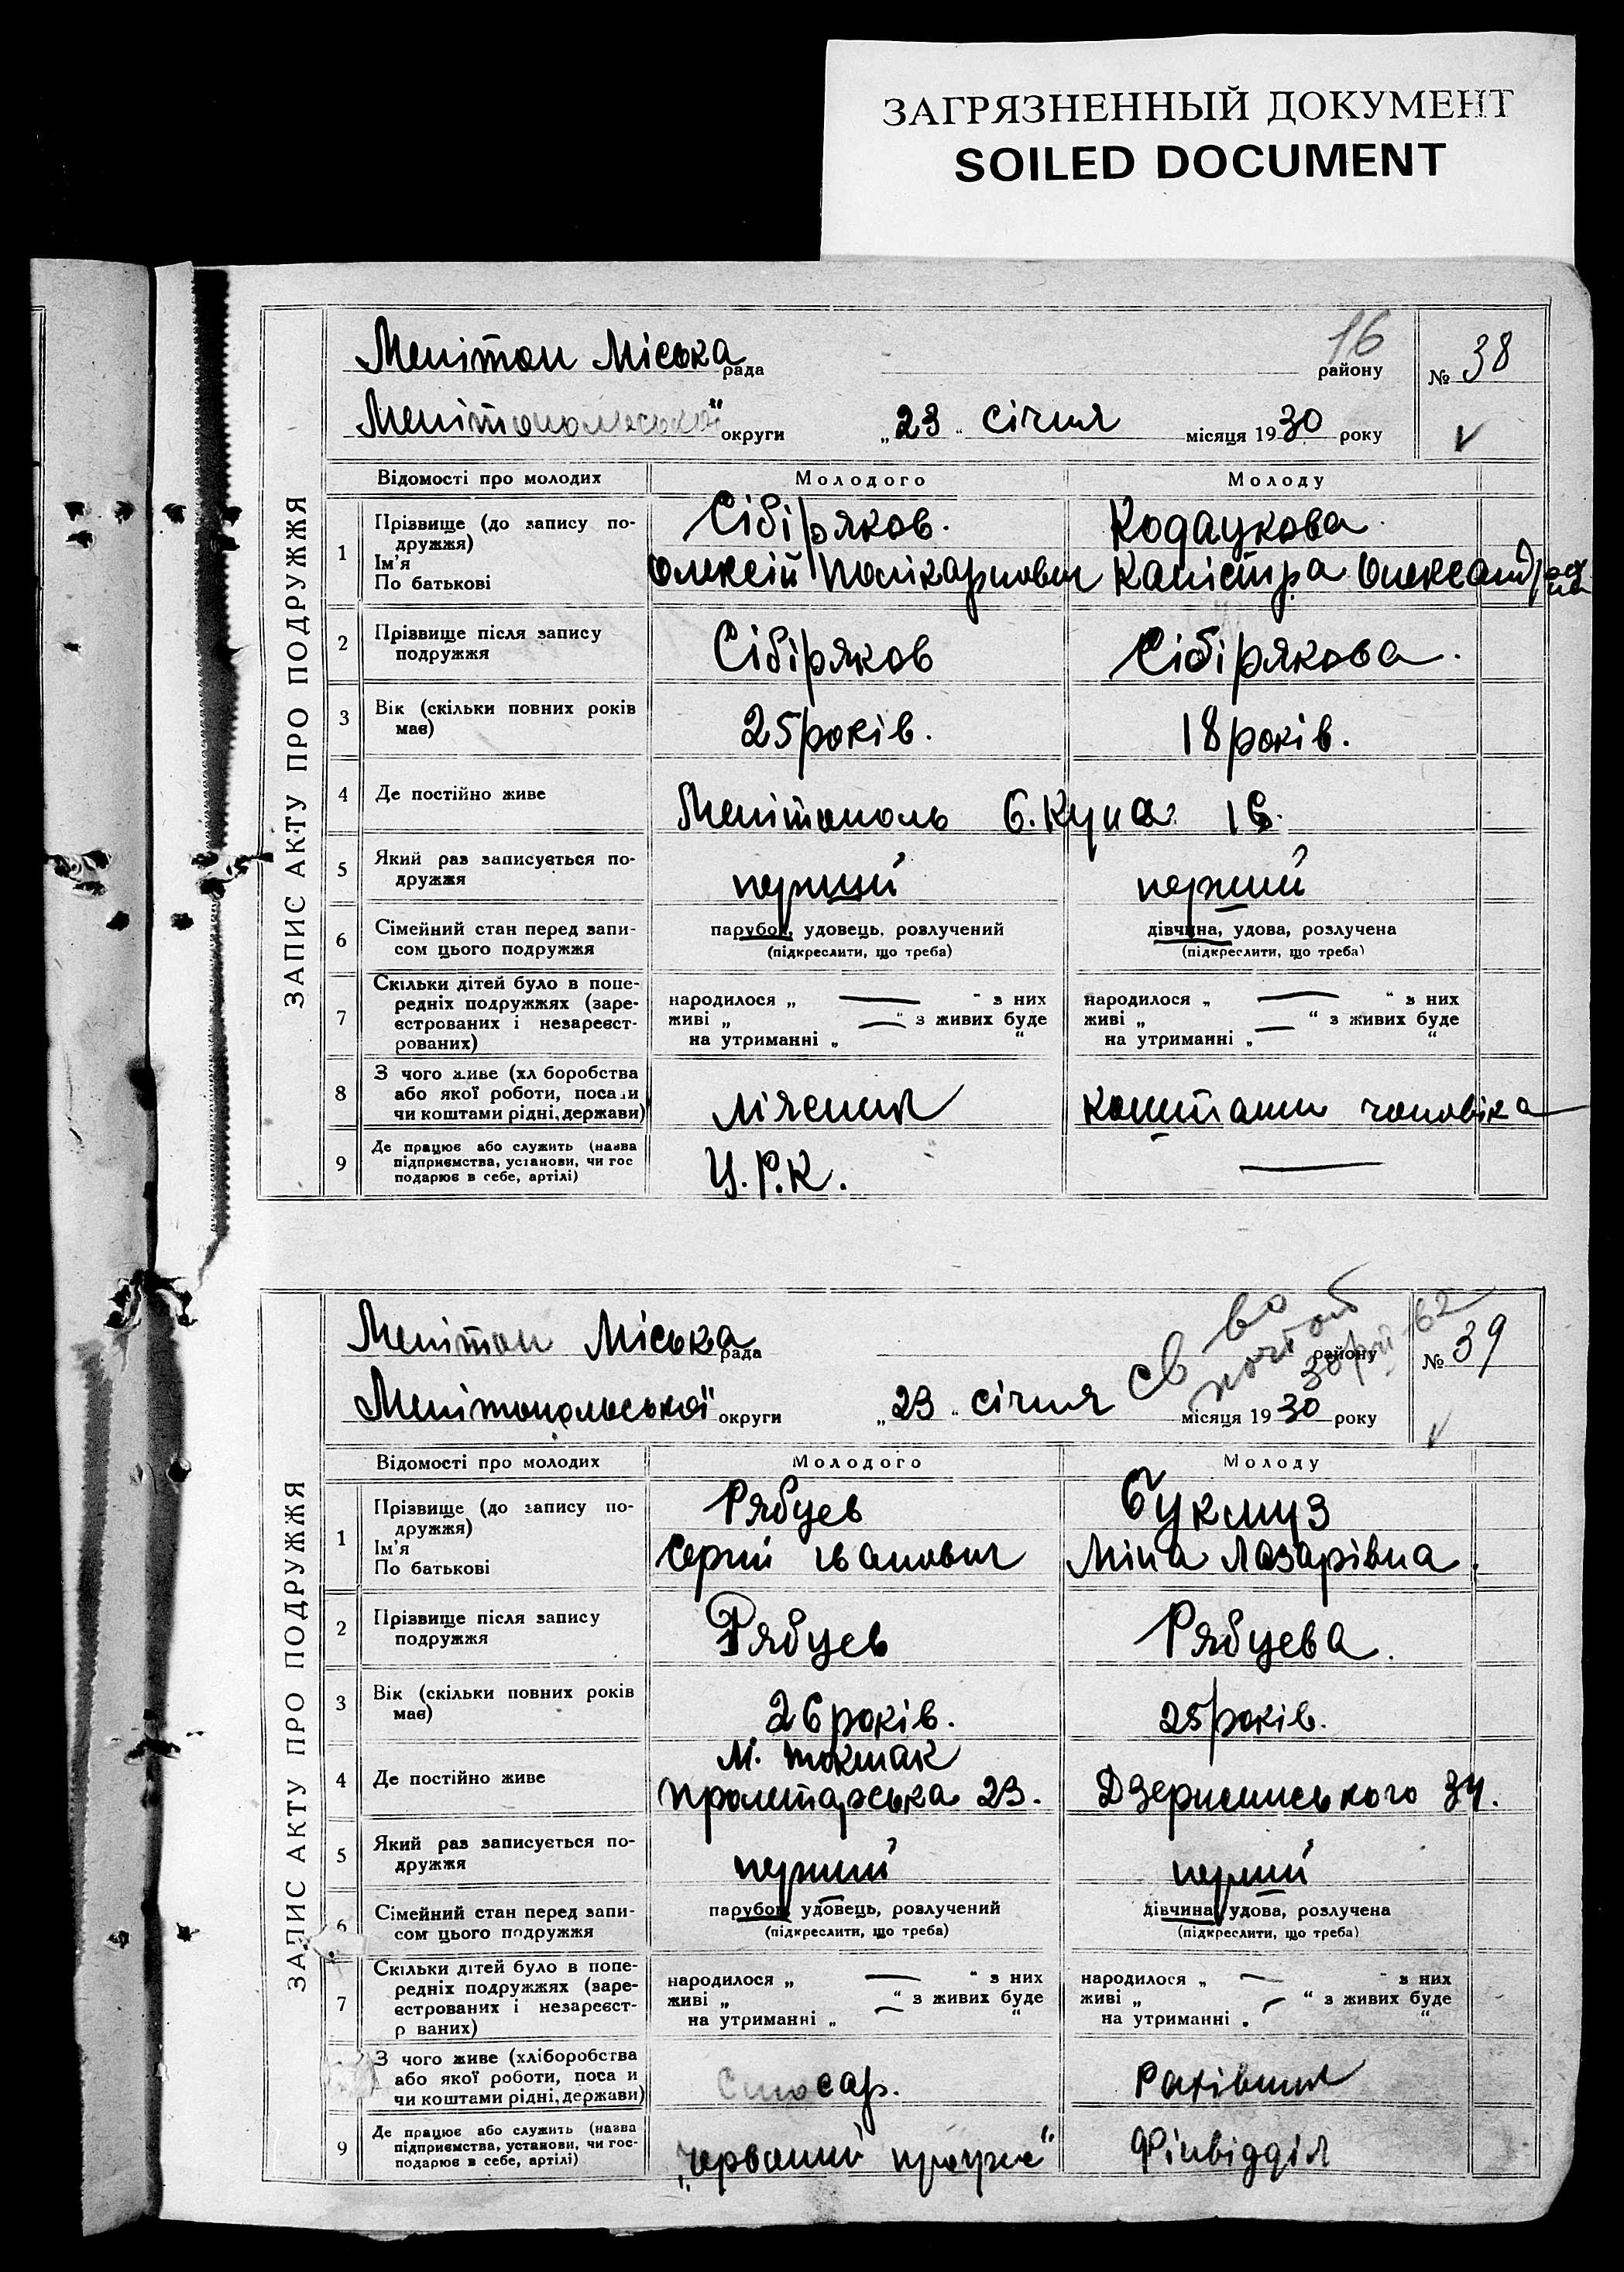 ЗАГРЯЗНЕННЫЙ ДОКУМЕНТ
SOILED DOCUMENT
ЗАПИС АКТУ ПРО ПОДРУЖЖЯ
16
Мелітоп Міська рада району № 38
Мелітопольської округи „23“ січня місяця 1930 року
Відомості про молодих Молодого Молоду
1 Прізвище (до запису по-
дружжя)
Ім'я
По батькові
Сібіряков. Кодацкова
Олексій Полікарпович Калістра Олександровна
2 Прізвище після запису
подружжя
Сібіряков Сібірякова.
3 Вік (скільки повних років
має)
25 років. 18 років.
4 Де постійно живе Мелітополь Б. Куна 16.
5 Який раз записується по-
дружжя
перший перший
6 Сімейний стан перед запи-
сом цього подружжя
парубок, удовець, розлучений дівчина, удова, розлучена
(підкреслити, що треба) (підкреслити, що треба)
7 Скільки дітей було в попе-
редніх подружжях (заре-
єстрованих і незареєст-
рованих)
народилося „ — “ з них народилося „ — “ з них
живі „ — “ з живих буде живі „ — “ з живих буде
на утриманні „ “ на утриманні „ “
8 З чого живе (хл боробства
або якої роботи, поса и
чи коштами рідні, держави)
м'ясник коштами чоловіка
9 Де працює або служить (назва
підприємства, установи, чи гос
подарює в себе, артілі)
Ц.Р.К. —
ЗАПИС АКТУ ПРО ПОДРУЖЖЯ
Мелітоп Міська рада району № 39
Мелітопольської округи „23“ січня місяця 1930 року
Відомості про молодих Молодого Молоду
1 Прізвище (до запису по-
дружжя)
Ім'я
По батькові
Рябцев Букмуз
Сергій Іванович Міна Лазарівна.
2 Прізвище після запису
подружжя
Рябцев Рябцева.
3 Вік (скільки повних років
має)
26 років. 25 років.
4 Де постійно живе
м. токмак
пролетарська 23. Дзержинського 34.
5 Який раз записується по-
дружжя
перший перший
6 Сімейний стан перед запи-
сом цього подружжя
парубок, удовець, розлучений дівчина, удова, розлучена
(підкреслити, що треба) (підкреслити, що треба)
7 Скільки дітей було в попе-
редніх подружжях (заре-
єстрованих і незареєст-
р ваних)
народилося „ — “ з них народилося „ — “ з них
живі „ — “ з живих буде живі „ — “ з живих буде
на утриманні „ “ на утриманні „ “
З чого живе (хліборобства
або якої роботи, поса и
чи коштами рідні, держави)
Слюсар. Рахівник
9 Де працює або служить (назва
підприємства, установи, чи гос-
подарює в себе, артілі)
„Червоний прогрес“ Фінвідділ